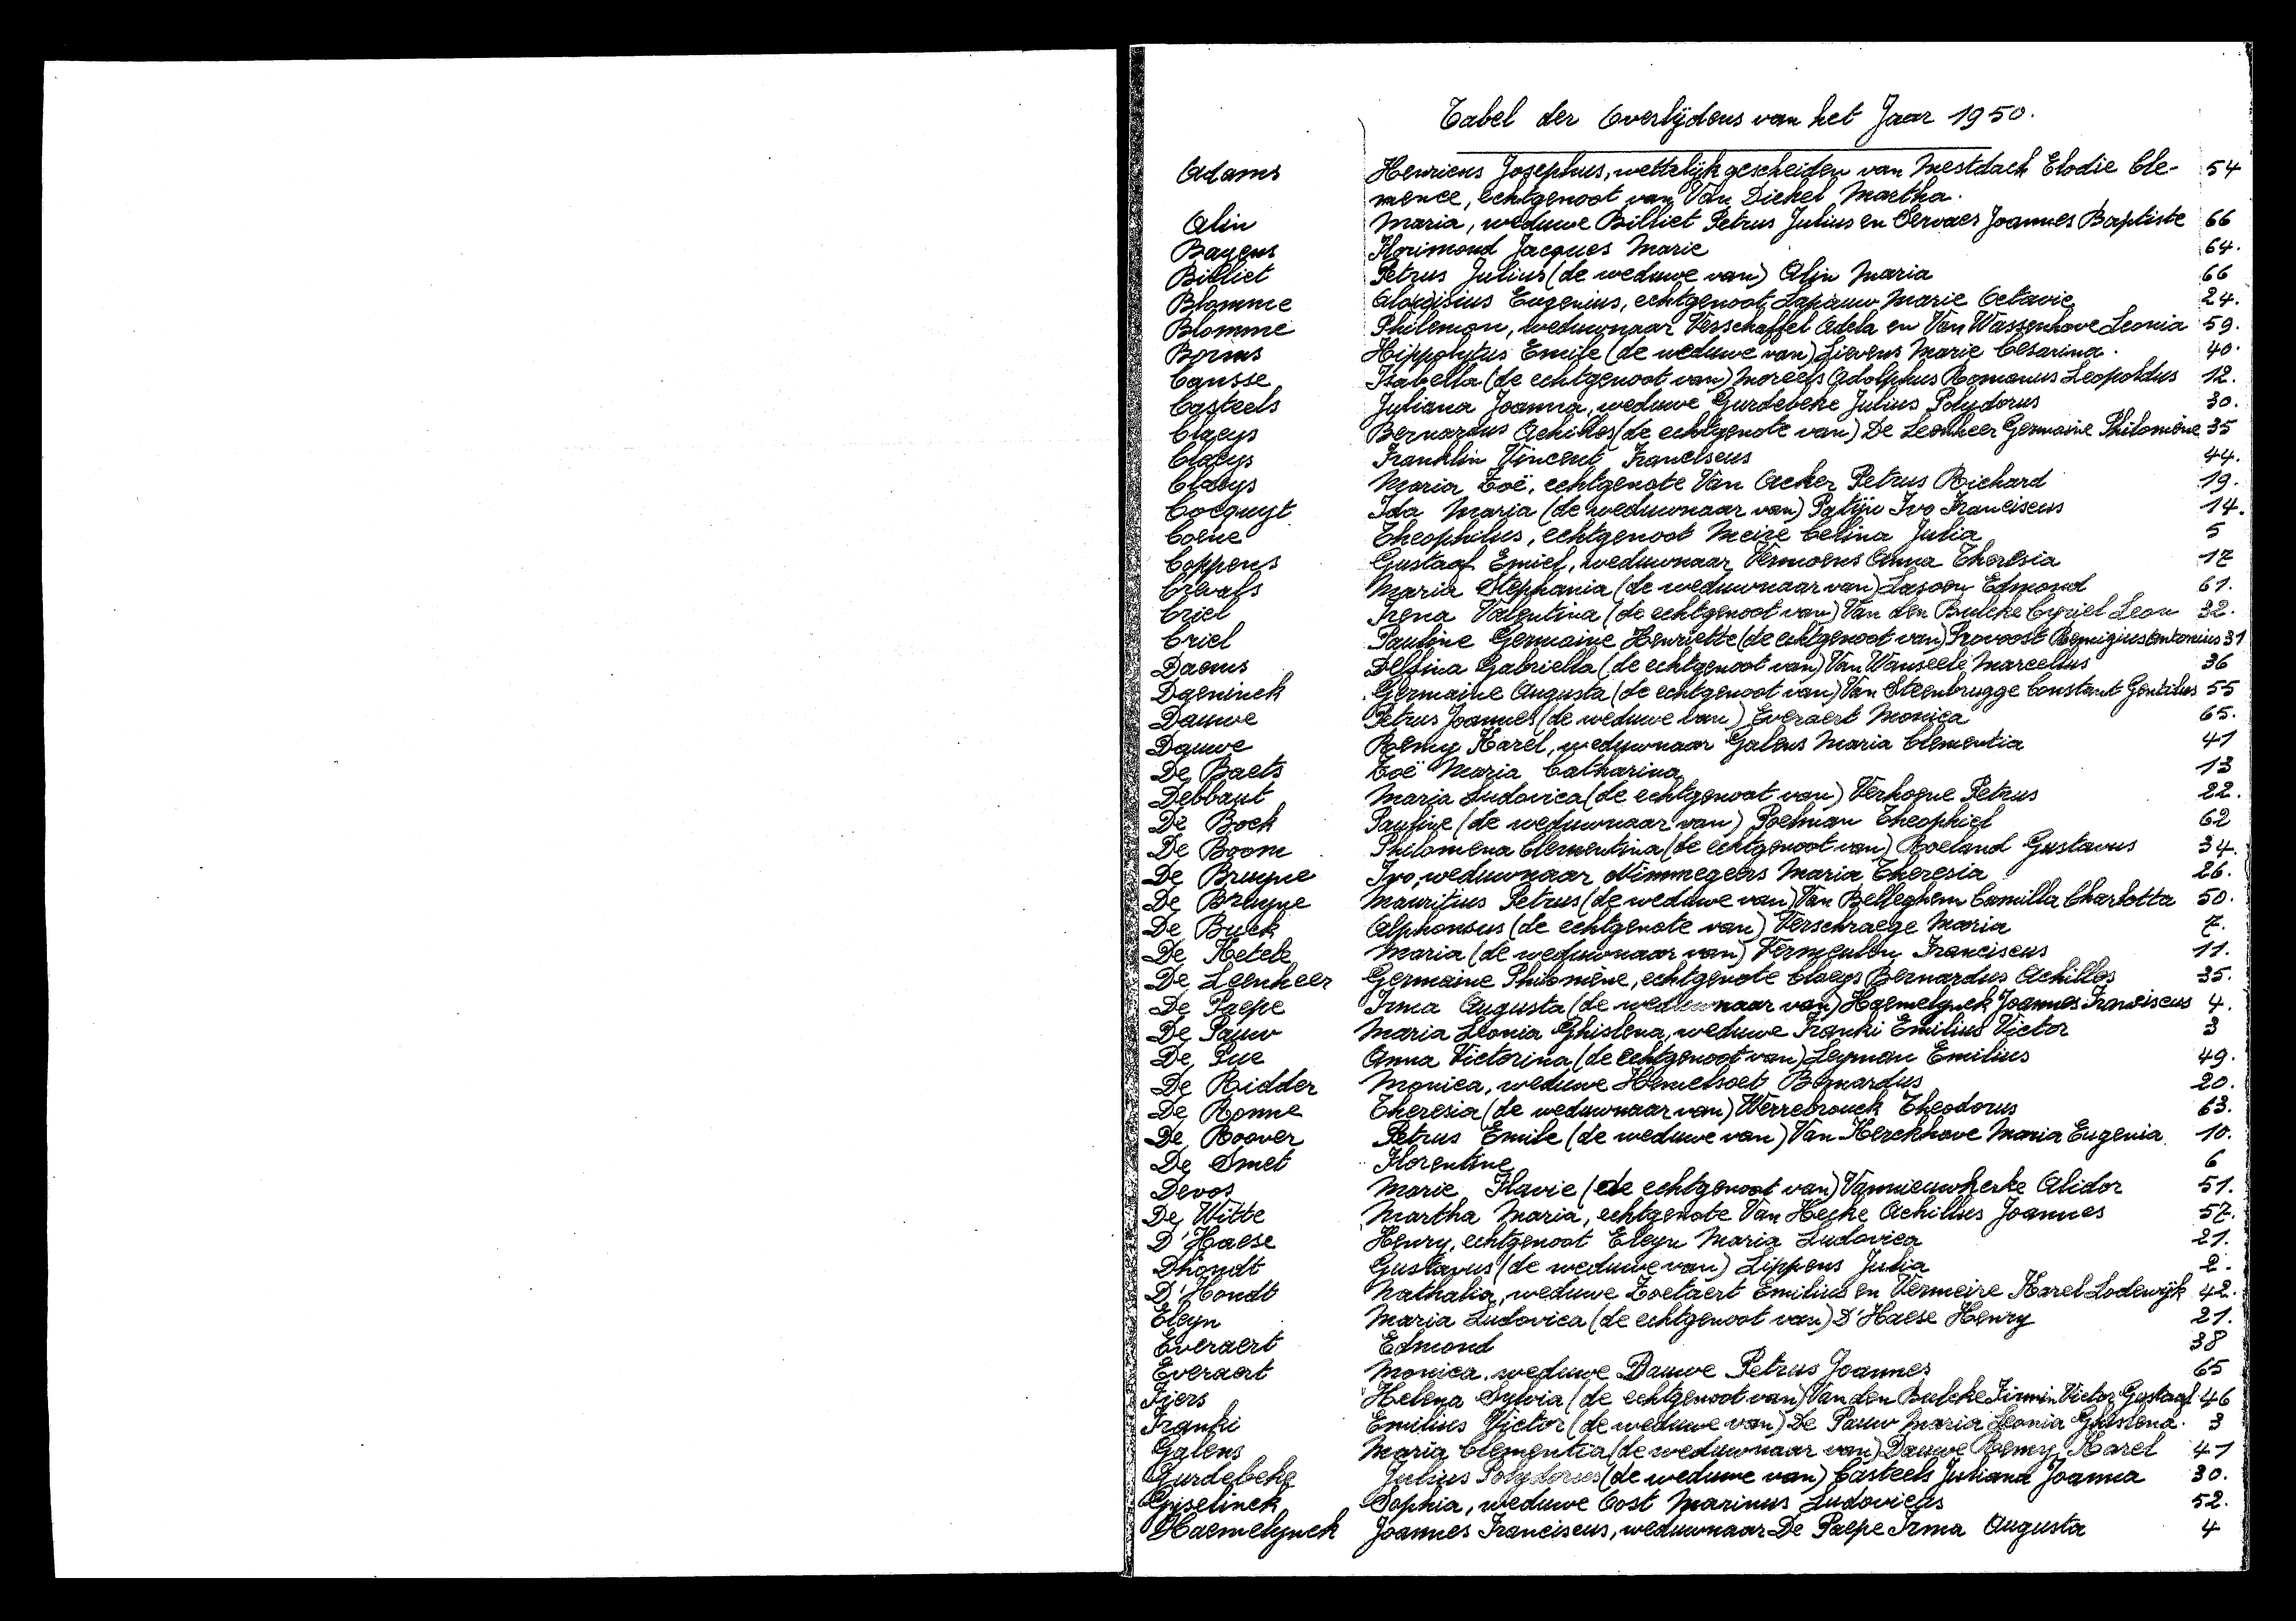 Tabel der Overlijdens van het Jaar 1950.
Adams Henricus Josephus, wettelijk gescheiden van Mestdach Elodie Cle- 54
mence, echtgenoot van Van Dickel Martha.
Alin Maria, weduwe Billiet Petrus Julius en Servaes Joannes Baptiste 66
Bayens Florimond Jacques Marie 64.
Billiet Petrus Julius (de weduwe van) Alin Maria 66
Blomme Aloïsius Eugenius, echtgenoot Lapauw Marie Octavie 24.
Blomme Philemon, weduwnaar Verschaffel Adela en Van Wassenhove Leonia 59.
Borms Hippolytus Emile (de weduwe van) Lievens Marie Cesarina. 40.
Causse Isabella (de echtgenoot van) Moreels Adolphus Romanus Leopoldus 12.
Casteels Juliana Joanna, weduwe Gurdebeke Julius Polydorus 30.
Claeys Bernardus Achilles (de echtgenote van) De Leenheer Germaine Philomène 35
Claeys Franklin Vincent Franciscus 44.
Claeys Maria Zoë, echtgenote Van Acker Petrus Richard 19.
Cocquyt Ida Maria (de weduwnaar van) Patijn Ivo Franciscus 14.
Coene Theophilus, echtgenoot Meire Celina Julia 5
Coppens Gustaaf Emiel, weduwnaar Vermoens Anna Theresia 17
Crevals Maria Stephania (de weduwnaar van) Lasoen Edmond 61.
Criel Irena Valentina (de echtgenoot van) Van den Bulcke Cyriel Leon 32.
Criel Pauline Germaine Henriette (de echtgenoot van) Provoost Remigius Antonius 31
Daems Delfina Gabriella (de echtgenoot van) Van Wanseele Marcellus 36
Daeninck Germaine Augusta (de echtgenoot van) Van Steenbrugge Constant Gentilus 55
Dauwe Petrus Joannes (de weduwe van) Everaert Monica 65.
Dauwe Remy Karel, weduwnaar Galens Maria Clementia 41
De Baets Zoë Maria Catharina 13
Debbaut Maria Ludovica (de echtgenoot van) Verhoeve Petrus 22.
De Bock Pauline (de weduwnaar van) Poelman Theophiel 62
De Boom Philomena Clementina (de echtgenoot van) Roeland Gustavus 34.
De Bruyne Ivo, weduwnaar Nimmegeers Maria Theresia 26.
De Bruyne Mauritius Petrus (de weduwe van) Van Belleghem Camilla Charlotta 50.
De Buck Alphonsus (de echtgenote van) Verschraege Maria 7.
De Ketele Maria (de weduwnaar van) Vermeulen Franciscus 11.
De Leenheer Germaine Philomène, echtgenote Claeys Bernardus Achilles 35.
De Paepe Irma Augusta (de weduwnaar van) Haemelynck Joannes Franciscus 4.
De Pauw Maria Leonia Ghislena, weduwe Franki Emilius Victor 3
De Pue Anna Victorina (de echtgenoot van) Leyman Emilius 49.
De Ridder Monica, weduwe Hemelsoet Bernardus 20.
De Ronne Theresia (de weduwnaar van) Werrebrouck Theodorus 63.
De Roover Petrus Emile (de weduwe van) Van Kerckhove Maria Eugenia 10.
De Smet Florentine 6
Devos Marie Flavie (de echtgenoot van) Vannieuwkerke Alidor 51.
De Witte Martha Maria, echtgenote Van Hecke Achilles Joannes 57.
D'Haese Henry, echtgenoot Eleyn Maria Ludovica 21.
Dhondt Gustavus (de weduwe van) Lippens Julia 2.
D'Hondt Nathalia, weduwe Zoetaert Emilius en Vermeire Karel Lodewijk 42.
Eleyn Maria Ludovica (de echtgenoot van) D'Haese Henry 21.
Everaert Edmond 38
Everaert Monica, weduwe Dauwe Petrus Joannes 65
Fiers Helena Sylvia (de echtgenoot van) Van den Bulcke Firmin Victor Gustaaf 46
Franki Emilius Victor (de weduwe van) De Pauw Maria Leonia Ghislena. 3
Galens Maria Clementia (de weduwnaar van) Dauwe Remy Karel 41
Gurdebeke Julius Polydorus (de weduwe van) Casteels Juliana Joanna 30.
Gyselinck Sophia, weduwe Cost Marinus Ludovicus 52.
Haemelynck Joannes Franciscus, weduwnaar De Paepe Irma Augusta 4